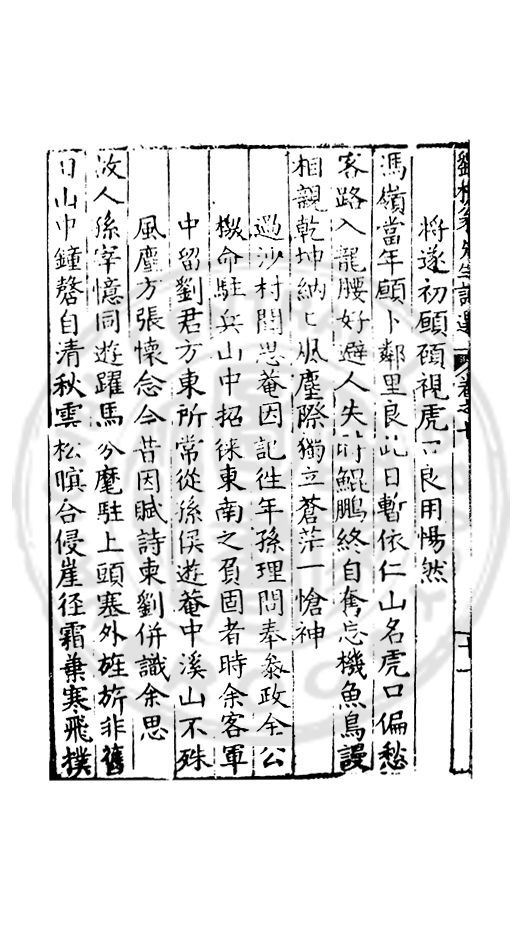 將遂初願顧視虎口良用惕然
馮嶺當年願卜鄰里良此日暫依仁山名虎口偏愁
客路入龍腰好避人失時鯤鵬終自奮忘機魚鳥謾
相親乾坤納納風塵際獨立蒼茫一愴神
過沙村問思菴因記徃年孫理問奉叅政全公
檄命駐兵山中招徠東南之負固者時余客軍
中留劉君方東所常從孫侯遊菴中溪山不殊
風塵方張懷念今昔因賦詩柬劉併識余思
故人孫宰憶同遊躍馬分麾駐上頭塞外旌旂非舊
日山中鐘磬自清秋雲松暝合侵崖径霜葉寒飛撲